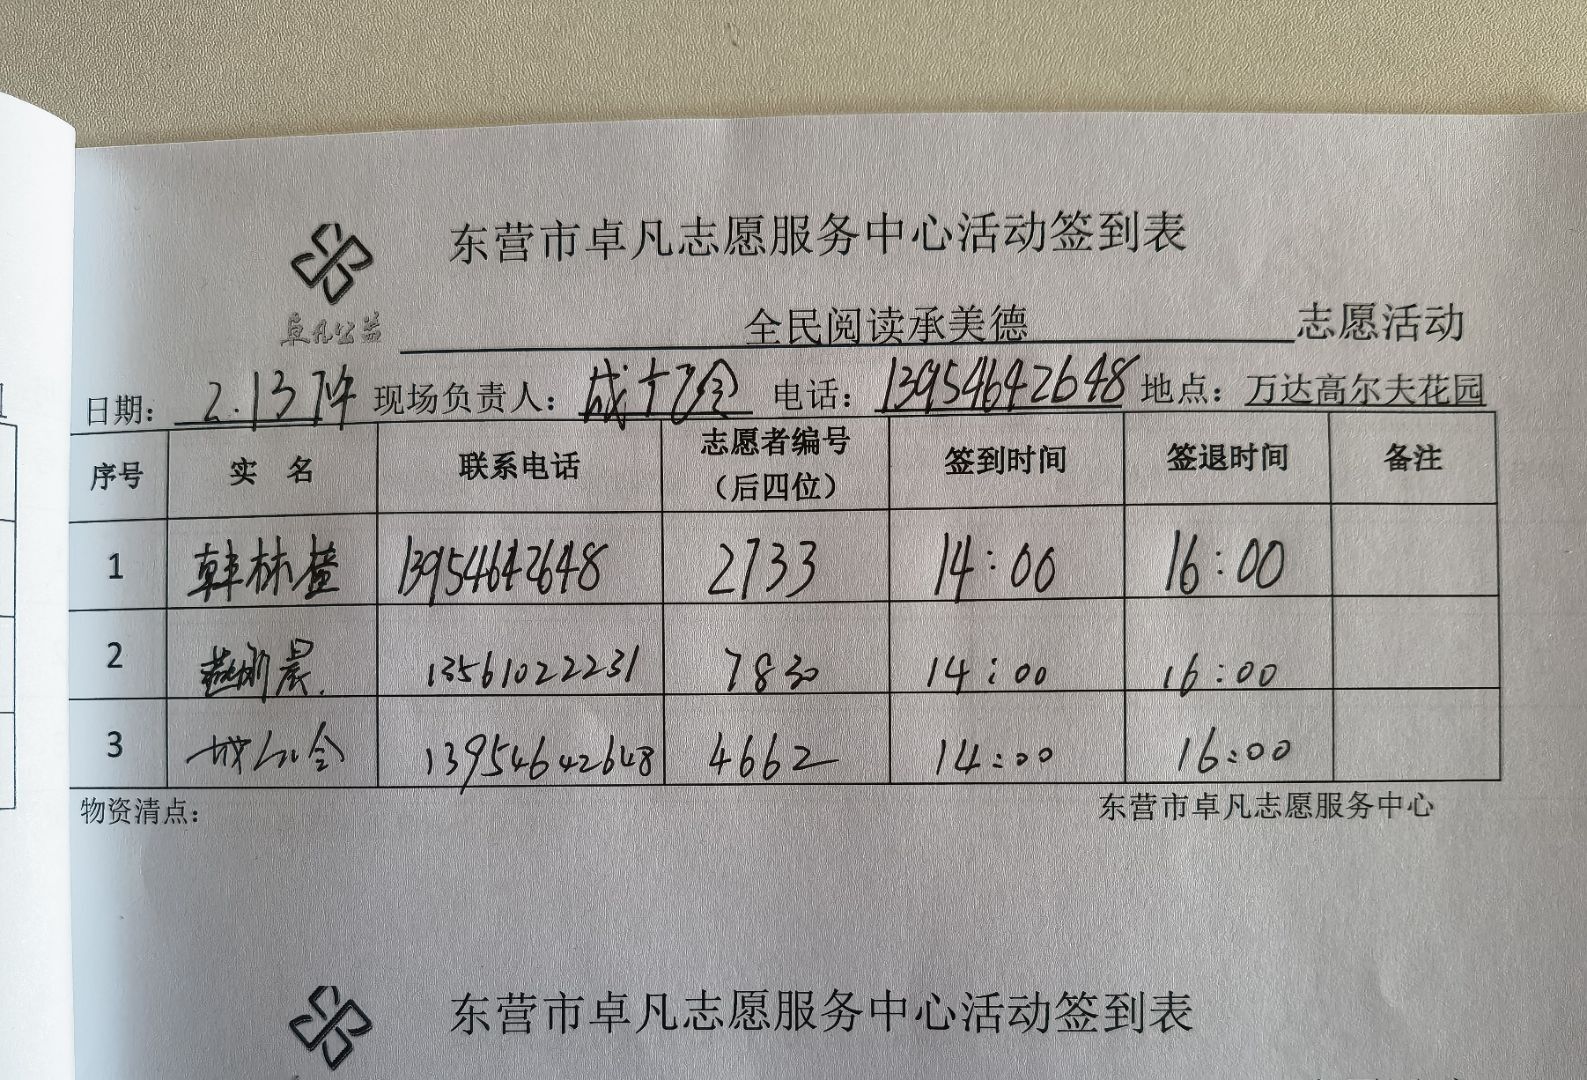 东营市卓凡志愿服务中心活动签到表
卓凡公益
全民阅读承美德 志愿活动
日期： 2.13下午 现场负责人： 电话： 13954642648 地点： 万达高尔夫花园
序号 实 名 联系电话 志愿者编号（后四位） 签到时间 签退时间 备注
1 韩林 13954642648 2733 14:00 16:00
2 晨 13561022231 7830 14:00 16:00
3 13954642648 4662 14:00 16:00
物资清点： 东营市卓凡志愿服务中心
东营市卓凡志愿服务中心活动签到表